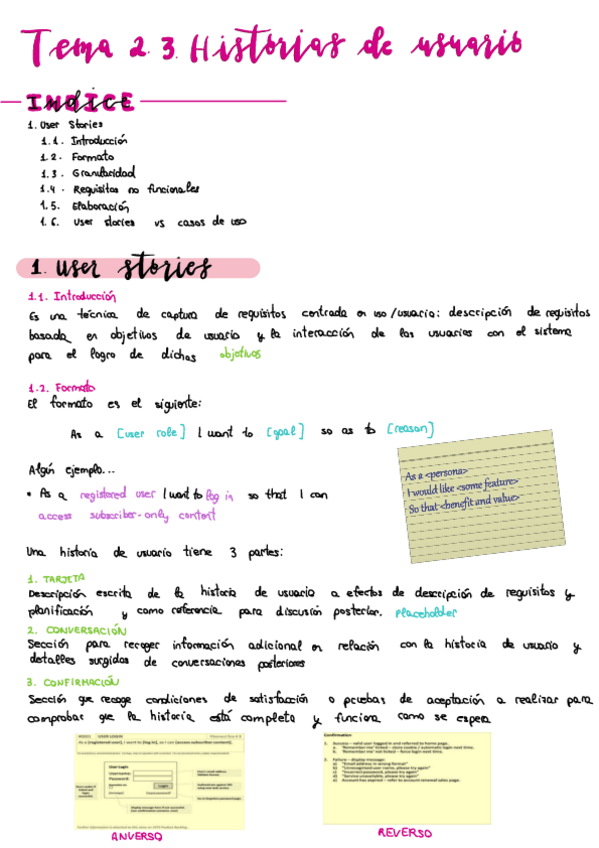 Tema 2.3. Historias de usuario
INDICE
1. User Stories
1.1. Introducción
1.2. Formato
1.3. Granularidad
1.4. Requisitos no funcionales
1.5. Elaboración
1.6. User stories vs casos de uso
1. User stories
1.1. Introducción
Es una técnica de captura de requisitos centrada en uso/usuario: descripción de requisitos
basada en objetivos de usuario y la interacción de los usuarios con el sistema
para el logro de dichos objetivos
1.2. Formato
El formato es el siguiente:
As a [user role] I want to [goal] so as to [reason]
As a <persona>
I would like <some feature>
So that <benefit and value>
Algún ejemplo...
• As a registered user I want to log in so that I can
access subscriber-only content
Una historia de usuario tiene 3 partes:
1. TARJETA
Descripción escrita de la historia de usuario a efectos de descripción de requisitos y
planificación y como referencia para discusión posterior. Placeholder
2. CONVERSACIÓN
Sección para recoger información adicional en relación con la historia de usuario y
detalles surgidos de conversaciones posteriores
3. CONFIRMACIÓN
Sección que recoge condiciones de satisfacción o pruebas de aceptación a realizar para
comprobar que la historia está completa y funciona como se espera
USER LOGIN
As a [registered user], I want to [log in], so I can [access subscriber content].
User Login
Username:
Password:
Login
Confirmation
1. Success – valid user logged in and referred to home page.
a) 'Remember me' ticked – store cookie / automatic login next time.
b) 'Remember me' not ticked – force login next time.
2. Failure – display message:
a) "Email address in wrong format"
b) "Unrecognised user name, please try again"
c) "Incorrect password, please try again"
d) "Service unavailable, please try again"
e) Account has expired – refer to account renewal sales page.
ANVERSO
REVERSO